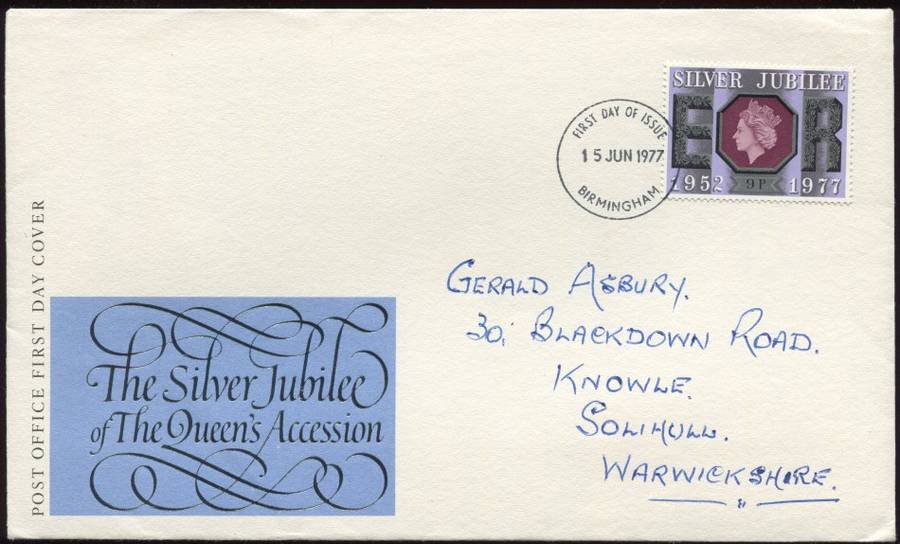 SILVER JUBILEE
E R
1952 9P 1977
FIRST DAY OF ISSUE
15 JUN 1977
BIRMINGHAM
GERALD ASBURY.
30, BLACKDOWN ROAD.
KNOWLE.
SOLIHULL.
WARWICKSHIRE.
POST OFFICE FIRST DAY COVER
The Silver Jubilee
of The Queen's Accession